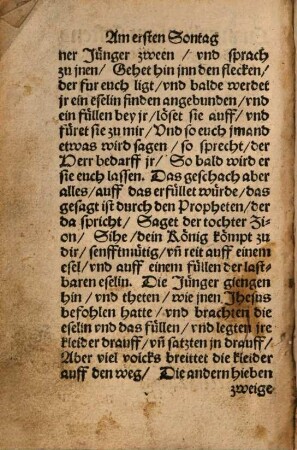 Am ersten Sontag
ner Jünger zween / vnd sprach
zu jnen / Gehet hin jnn den flecken /
der fur euch ligt / vnd balde werdet
jr ein eselin finden angebunden / vnd
ein füllen bey jr / löset sie auff / vnd
füret sie zu mir / Vnd so euch jmand
etwas wird sagen / so sprecht / der
Herr bedarff jr / So bald wird er
sie euch lassen. Das geschach aber
alles / auff das erfüllet würde / das
gesagt ist durch den Propheten / der
da spricht / Saget der tochter Zi-
on / Sihe / dein König kömpt zu
dir / senfftmütig / vn̄ reit auff einem
esel / vnd auff einem füllen der last-
baren eselin. Die Jünger giengen
hin / vnd theten / wie jnen Jhesus
befohlen hatte / vnd brachten die
eselin vnd das füllen / vnd legten jre
kleider drauff / vn̄ satzten jn drauff /
Aber viel volcks breittet die kleider
auff den weg / Die andern hieben
zweige